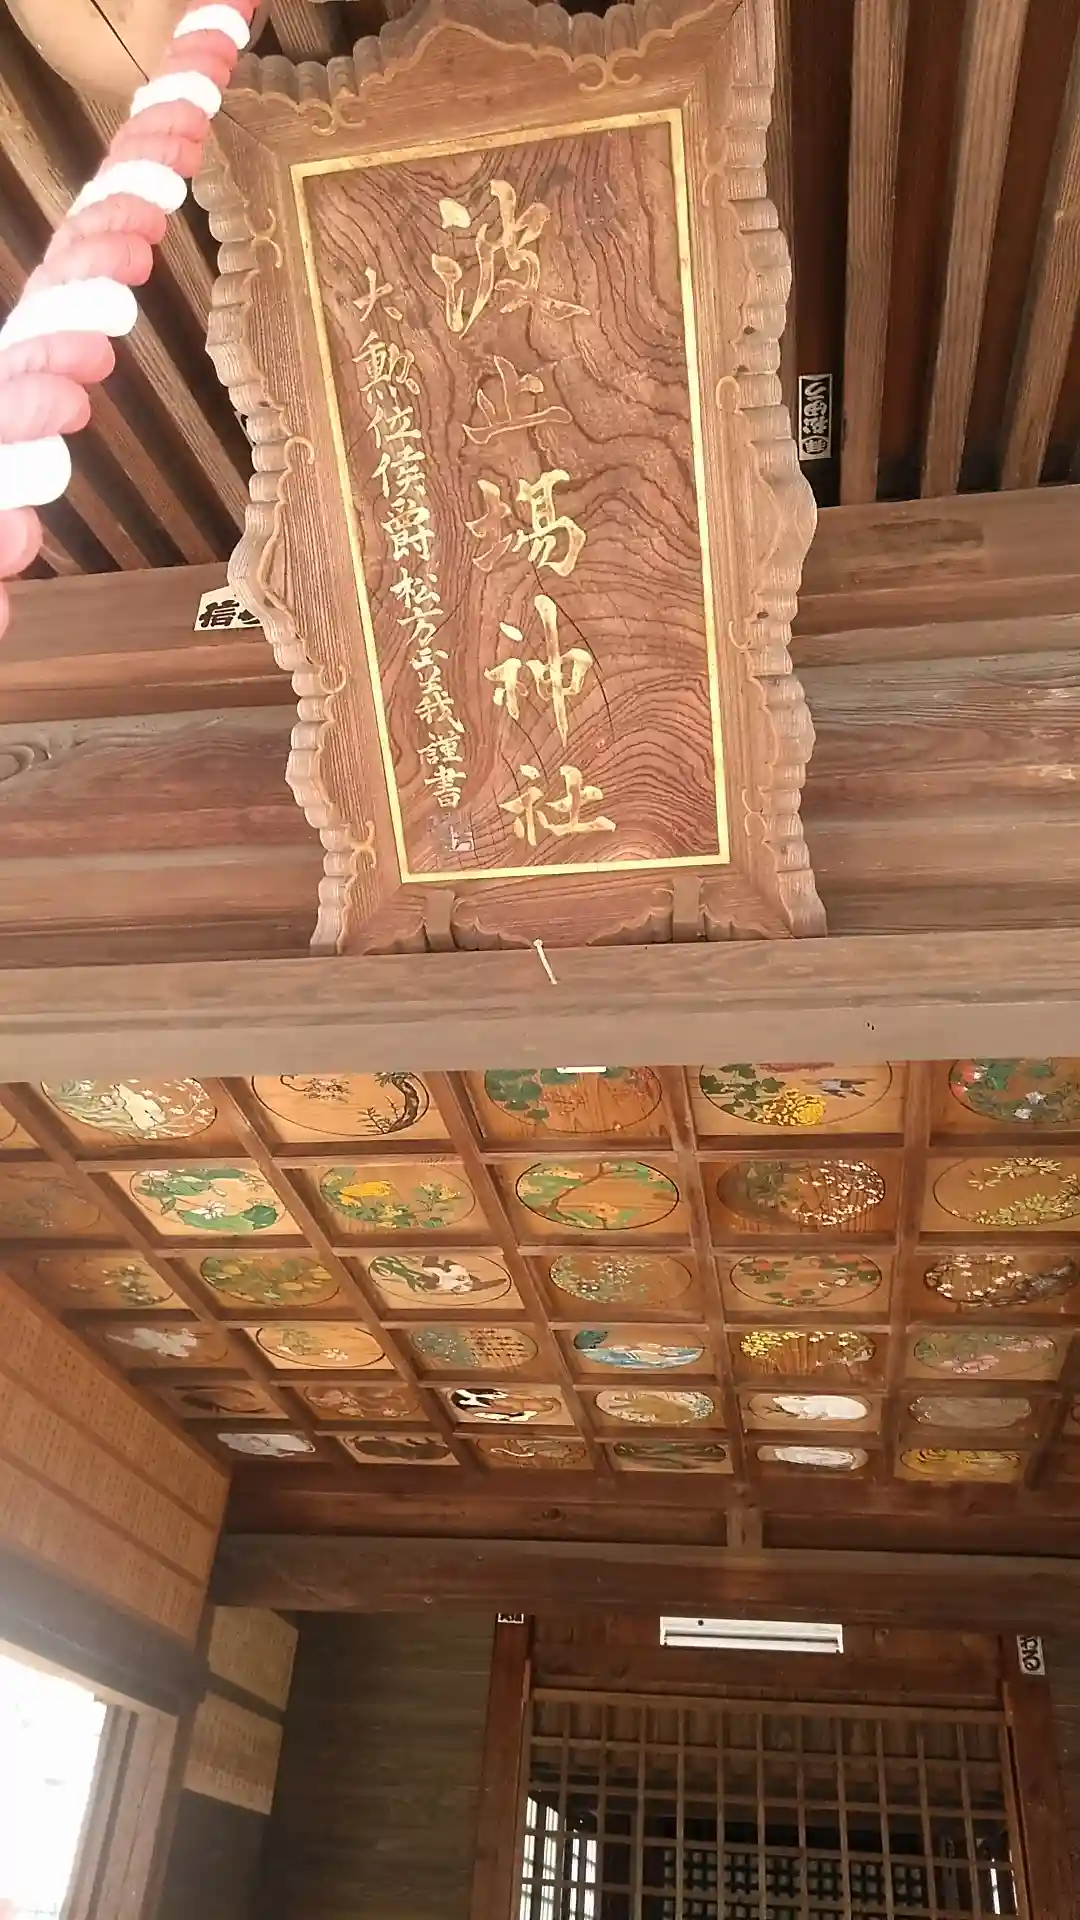 波止場神社
大勲位侯爵松方正義謹書